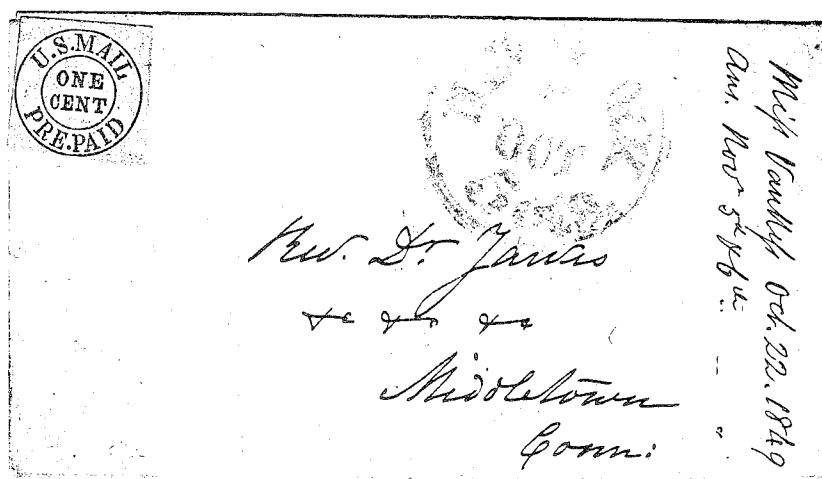 U.S. MAIL
ONE
CENT
PRE-PAID
OCT
Rev. Dr. Jarvis
&c &c &c
Middletown
Conn:
Miss VanNess Oct. 22. 1849
Ans. Nov 5th & 6th " "